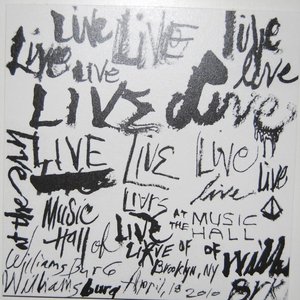 Live Live Live live
Live live
LIVE Live
LIVE Live Live live Live
live at the
LIVE
MUSIC AT THE MUSIC
Hall of LIVE HALL
OF OF
Williamsburg Brooklyn, NY Will
Williamsburg April, 18 2010 BrK